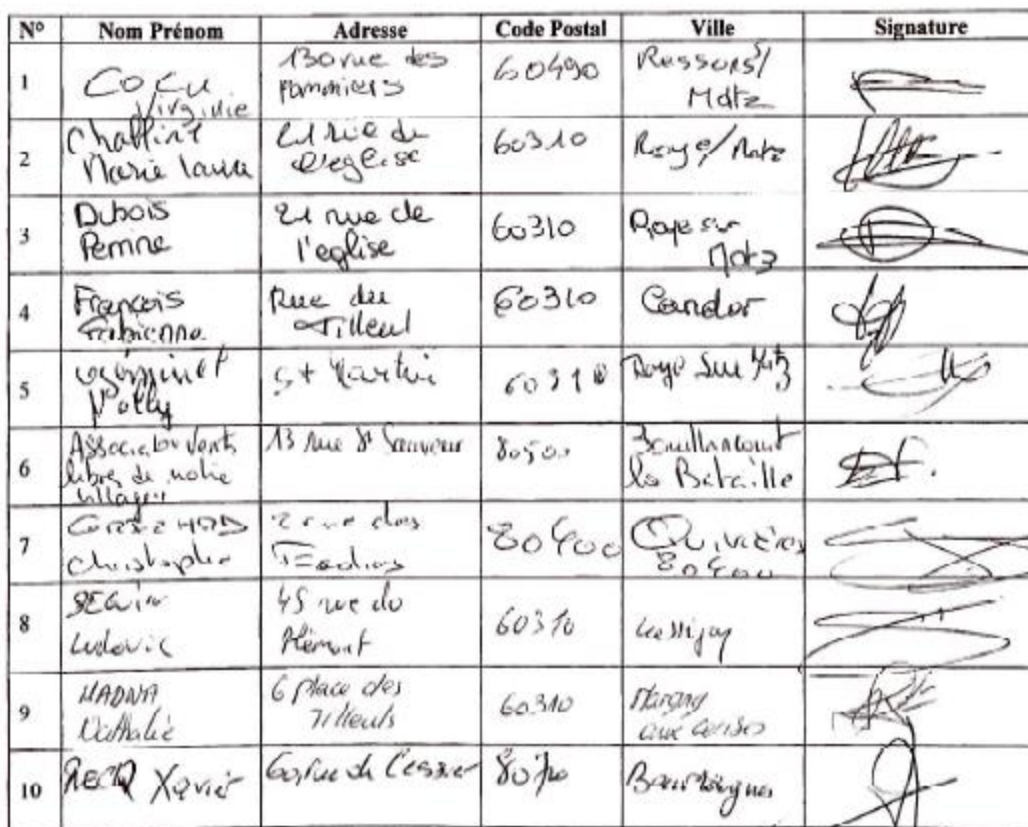 N° Nom Prénom Adresse Code Postal Ville Signature
1 COCU Virginie 130 rue des pommiers 60490 Ressons/ Matz
2 Marie Laure 21 rue de l'eglise 60310 Roye/Matz
3 Dubois Perrine 21 rue de l'eglise 60310 Roye sur Matz
4 François Fabienne Rue du Tilleul 60310 Candor
5 St Martin 60310 Roye Sur Matz
6 Association vents libres de notre villages 13 rue St Sauveur 80500 Bouillancourt la Bataille
7 Christophe 2 rue des 80400 Quivières 80400
8 SEGUIN Ludovic 45 rue du 60310 Lassigny
9 Nathalie 6 place des Tilleuls 60310 Margny aux cerises
10 RECQ Xavier